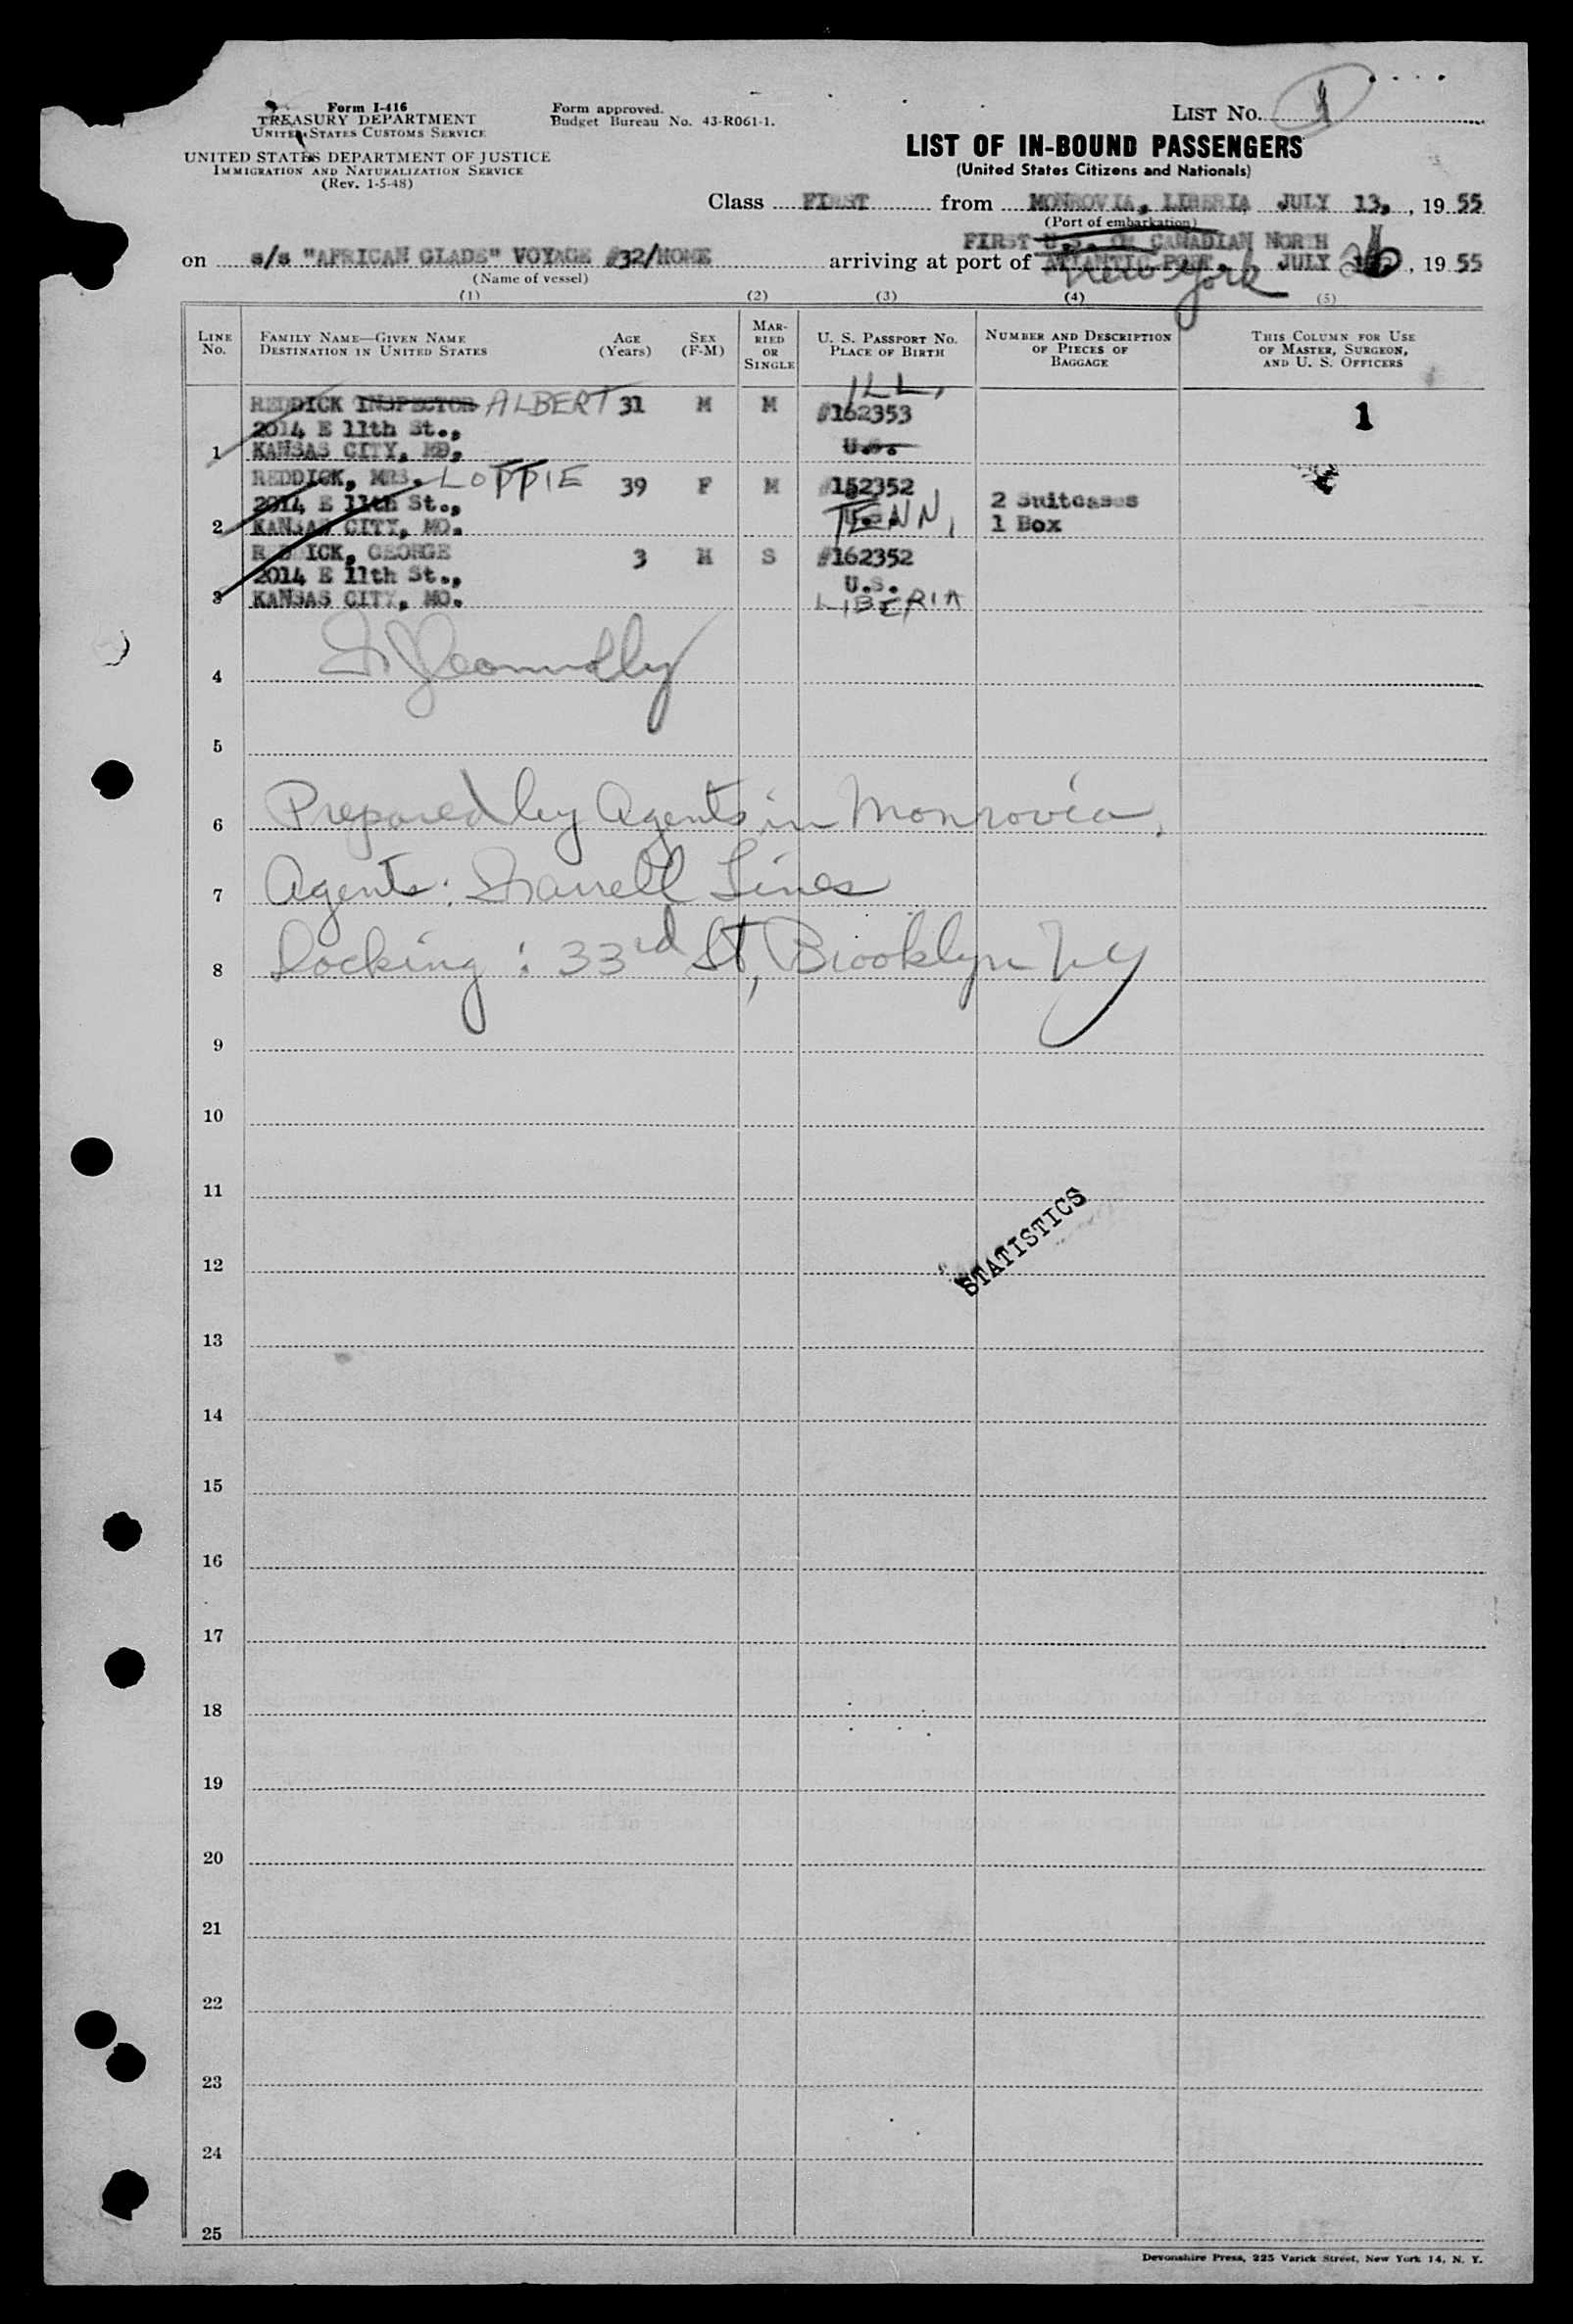 Form I-416
TREASURY DEPARTMENT
UNITED STATES CUSTOMS SERVICE
UNITED STATES DEPARTMENT OF JUSTICE
IMMIGRATION AND NATURALIZATION SERVICE
(Rev. 1-5-48)
Form approved.
Budget Bureau No. 43-R061-1.
LIST No. 1
LIST OF IN-BOUND PASSENGERS
(United States Citizens and Nationals)
Class FIRST from MONROVIA, LIBERIA JULY 13, , 19 55
(Port of embarkation)
FIRST U.S. OR CANADIAN NORTH
on s/s "AFRICAN GLADE" VOYAGE #32/HOME arriving at port of ATLANTIC PORT. New York JULY 26 , 19 55
(Name of vessel)
(1) (2) (3) (4) (5)
LINE No. FAMILY NAME—GIVEN NAME DESTINATION IN UNITED STATES AGE (Years) SEX (F-M) MARRIED OR SINGLE U. S. PASSPORT NO. PLACE OF BIRTH NUMBER AND DESCRIPTION OF PIECES OF BAGGAGE THIS COLUMN FOR USE OF MASTER, SURGEON, AND U. S. OFFICERS
ILL.
REDDICK INSPECTOR ALBERT 31 M M #162353 1
2014 E 11th St.,
1 KANSAS CITY, MO. U.S.
REDDICK, MRS. LOTTIE 39 F M #152352
2014 E 11th St., TENN. 2 Suitcases
2 KANSAS CITY, MO. 1 Box
REDDICK, GEORGE 3 M S #162352
2014 E 11th St., U.S.
3 KANSAS CITY, MO. LIBERIA
4
5
6 Prepared by Agents in Monrovia.
7 Agents: Farrell Lines
8 Docking: 33rd St, Brooklyn NY
9
10
11
STATISTICS
12
13
14
15
16
17
18
19
20
21
22
23
24
25
Devonshire Press, 225 Varick Street, New York 14, N. Y.